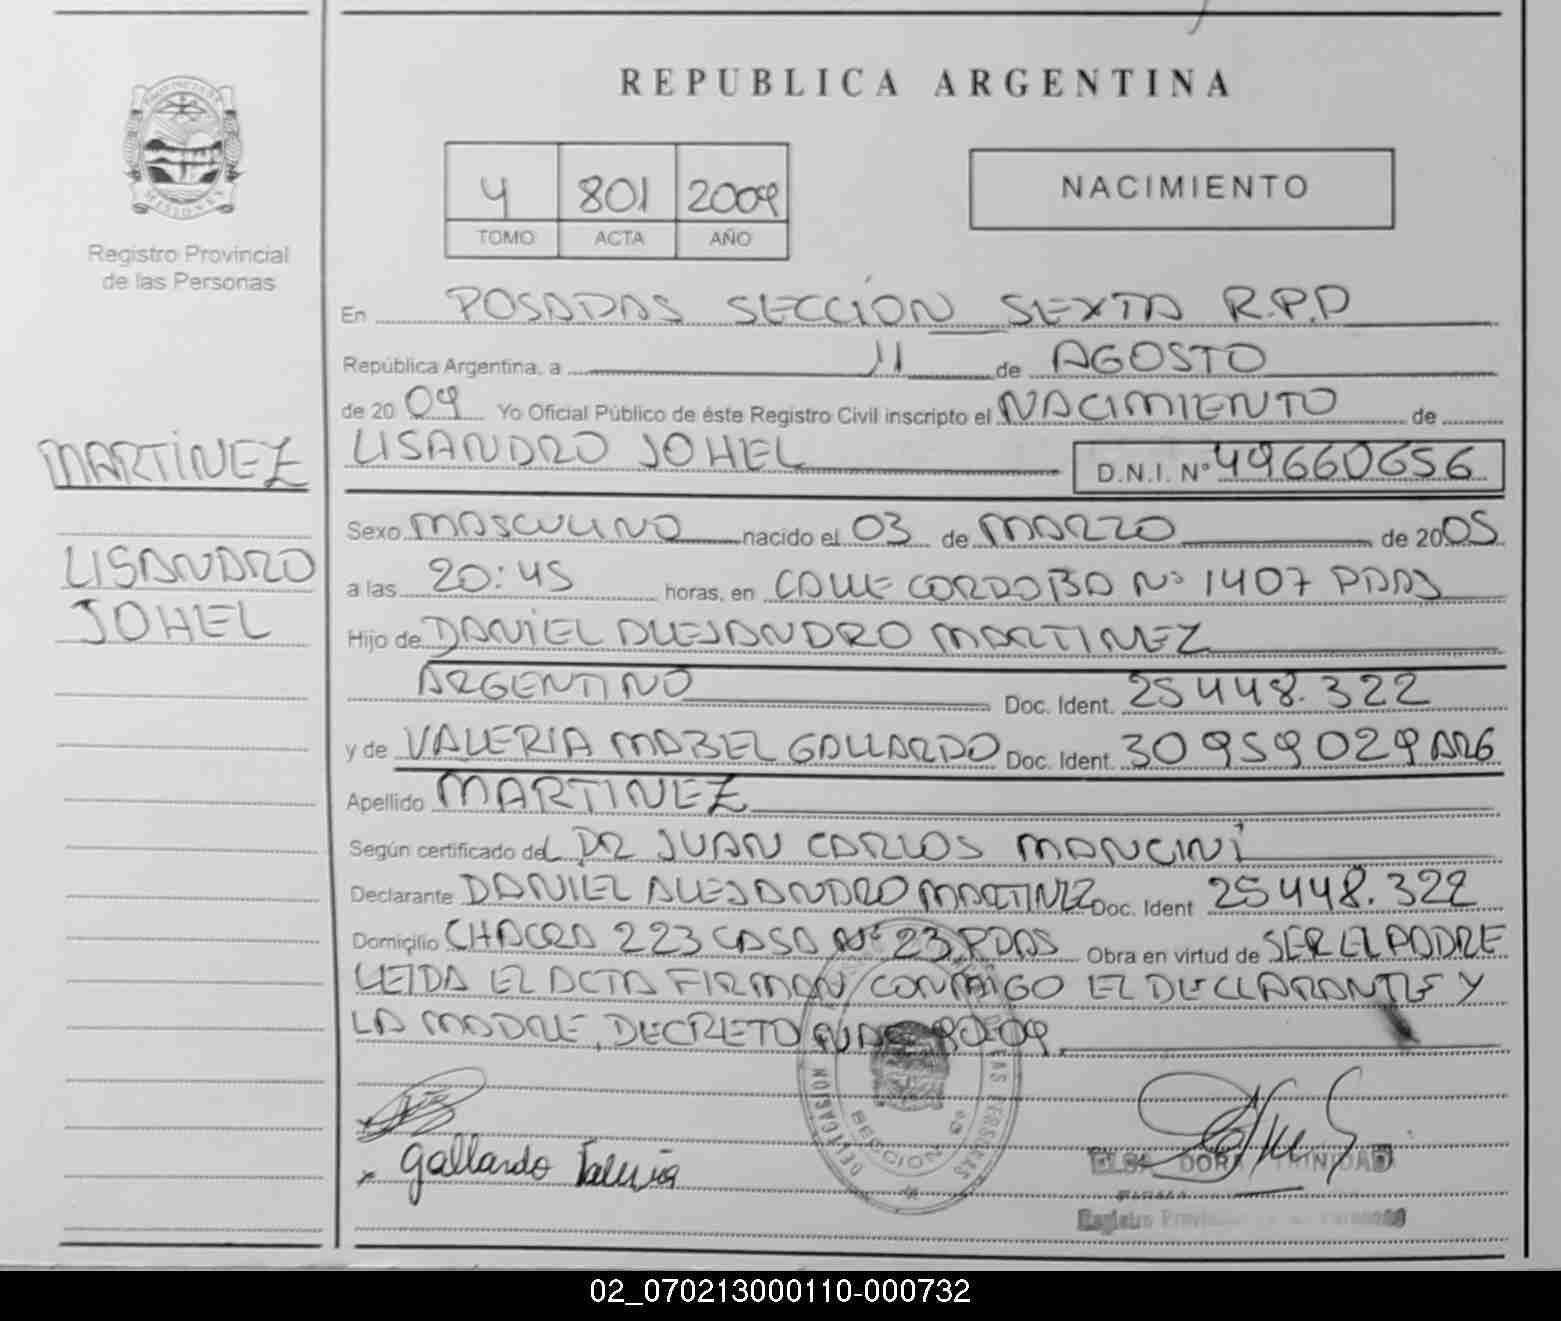 REPUBLICA ARGENTINA
PROVINCIA DE
MISIONES
Registro Provincial
de las Personas
4 801 2009
TOMO ACTA AÑO
NACIMIENTO
En POSADAS SECCIÓN SEXTA R.P.P
República Argentina, a 11 de AGOSTO
de 2009 Yo Oficial Público de éste Registro Civil inscripto el NACIMIENTO de
MARTINEZ
LISANDRO JOHEL D.N.I. Nº 49660656
Sexo MASCULINO nacido el 03 de MARZO de 2005
LISANDRO
JOHEL
a las 20:45 horas, en CALLE CORDOBA Nº 1407 PDAS
Hijo de DANIEL ALEJANDRO MARTINEZ
ARGENTINO Doc. Ident. 25448.322
y de VALERIA MABEL GALLARDO Doc. Ident. 30959029 ARG
Apellido MARTINEZ
Según certificado del DR JUAN CARLOS MANCINI
Declarante DANIEL ALEJANDRO MARTINEZ Doc. Ident 25448.322
Domicilio CHACRA 223 CASA Nº 23 PDAS Obra en virtud de SER EL PADRE
LEIDA EL ACTA FIRMAN CONMIGO EL DECLARANTE Y
LA MADRE, DECRETO 90-09.
DELEGACION SECCION 6ª LAS PERSONAS
Gallardo Valeria
ELSA DORA TRINIDAD
Registro
02_070213000110-000732